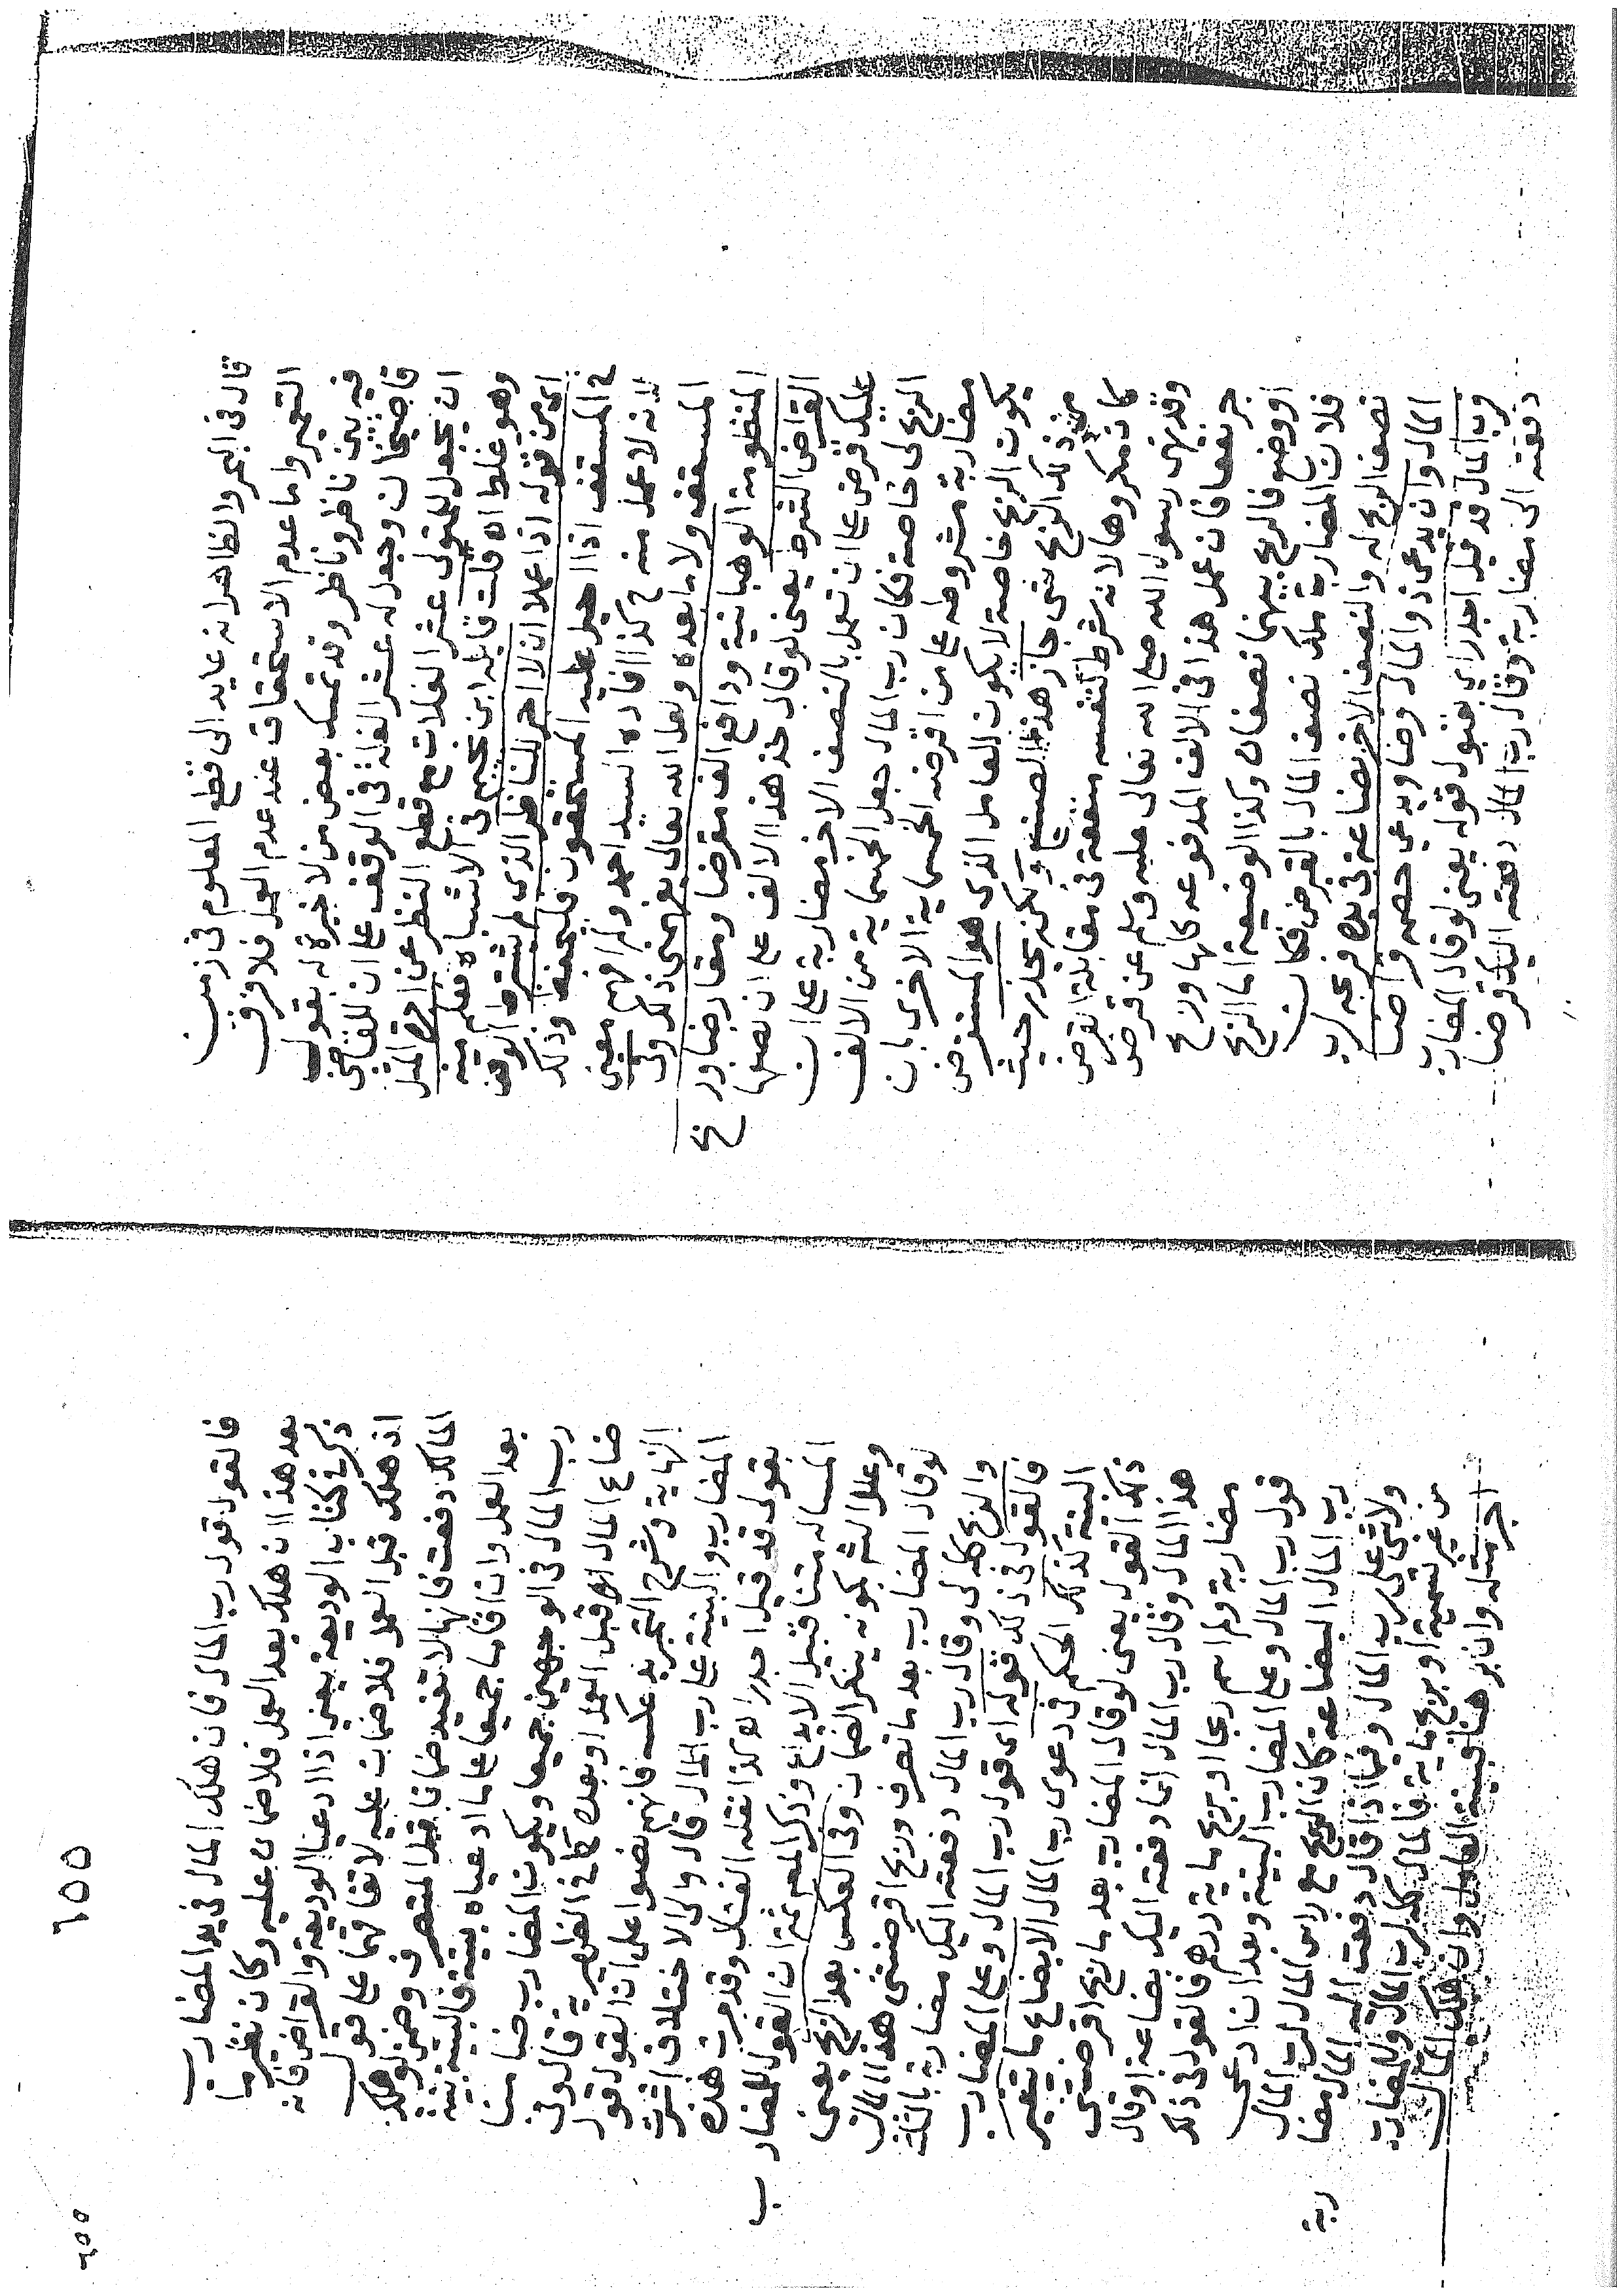 قال في البحر والظاهر انه عايد الى قطع المعلوم في زمن
التعمير واما عدم الاستحقاق عند عدم العمل فلا فرق
فيه بين ناظر وناظر وقد تمسك بعض من لا خبرة له بقول
قاضيخان وجعل له عشر الغلة في الوقف على ان للقاضي
ان يجعل للمتولي عشر الغلات مع قطع النظر عن اجر المثل
وهو غلط اه قلت قاله ابن نجيم في الاشباه فعلم منه
اي من قوله اذا عملا ان لا اجر للناظر الذي لم يشترط الواقف
في المسقف اذا احيل عليه المستحقون فليحفظ وذكر
لانه لا عمل منه ح كذا افاده السيد احمد ولم افهم معنى
المسقف ولا ما بعده ولعل الله تعالى ذكر وفي
المنظومة الوهبانية ودافع الف مقرضا ومقارضا وربح
القراض الشرط يعني لو قال خذ هذا الالف على ان نصفها
عليك قرض على ان تعمل بالنصف الاخر مضاربة على ان
الربح لي خاصة فكان رب المال جعل الخمسماية من الالف
مضاربة مشروطه على من اقرضه الخمسماية الاخرى بان
يكون الربح خاصة لا يكون للعامل الذي هو المستقرض
من ذلك الربح شي جاز هذا الصنيع ولكن يحذر حيث
كان مكروها لانه شرط لنفسه منفعة في مقابلة القرض
وقد نهى رسول الله صلى الله تعالى عليه وسلم عن قرض
جر نفعا فان عمل هذا في الالف المدفوعه كلها وربح
او وضع فالربح بينهما نصفان وكذا الوضيعة اما الربح
فلان المضاربة ملك نصف المال بالقرض فكان
نصف الربح له والنصف الاخر بضاعة في يده فربحه لرب
المال وان يدعي ذو المال قرضا ويدعي خصمه قراضا
فرب المال قد قيل اجدر اي بقبول قوله يعني لو قال المضارب
دفعته الى مضاربة وقال رب المال دفعته اليك قرضا
٦٥٥
فالقول قول رب المال فان هلك المال في يد المضارب
بعد هذا ان هلك بعد العمل فلا ضمان عليه وكان نظير ما
ذكر في كتاب الوديعة يعني اذا ادعيا الوديعة والقراض فانه
اذ هلك قبل العمل فلا ضمان عليه لاتفاقهما على قول
المالك دفعت فانها لا تفيد ضمانا قبل التصرف وضمن لو هلك
بعد العمل وان اقاما جميعا على ما ادعياه بينة فالبينة بينة
رب المال في الوجهين جميعا ويكون المضارب ضامنا
ضاع المال اه قبل العمل او بعده كما في الظهيرية قال وفي
النهاية وشرح التجريد عكسه فانهم نصوا على ان القول قول
المضارب والبينة على رب المال قال والى الاختلاف اشرت
بقولي قد قيل اجدر اه كذا نقله الغشك وقد مرت هذه
المسالة متنا قبيل الايداع وذكر المصم ثمة ان القول للمضارب
وعلل الشم بكونه ينكر الضمان وفي العكس بعد الربح يعني
لو قال المضارب بعد ما تصرف وربح اقرضتني هذا المال
والربح كله لي وقال رب المال دفعته اليك مضاربة بالثلث
فالقول في ذلك قوله اي قول رب المال وعلى المضارب
البينة كذلك الحكم في دعوى رب المال الابضاع ما تغير
ذلك القول يعني لو قال المضارب بعد ما ربح اقرضتني
هذا المال وقال رب المال انما دفعته اليك بضاعة او قال
مضاربة ولم اسم ربحا او بربح ماية درهم فالقول في ذلك
قول رب المال وعلى المضارب البينة وبعد ان ادعى
رب المال البضاعة كان الربح مع راس المال لرب المال
ولا شي على رب المال وفيما اذا قال دفعت اليه المال مضاربة
من غير تسمية او بربح ماية فالمال كله لرب المال وللمضارب
اجر مثله وان برهنا فبينة العامل وان هلك المال
٦٥٥